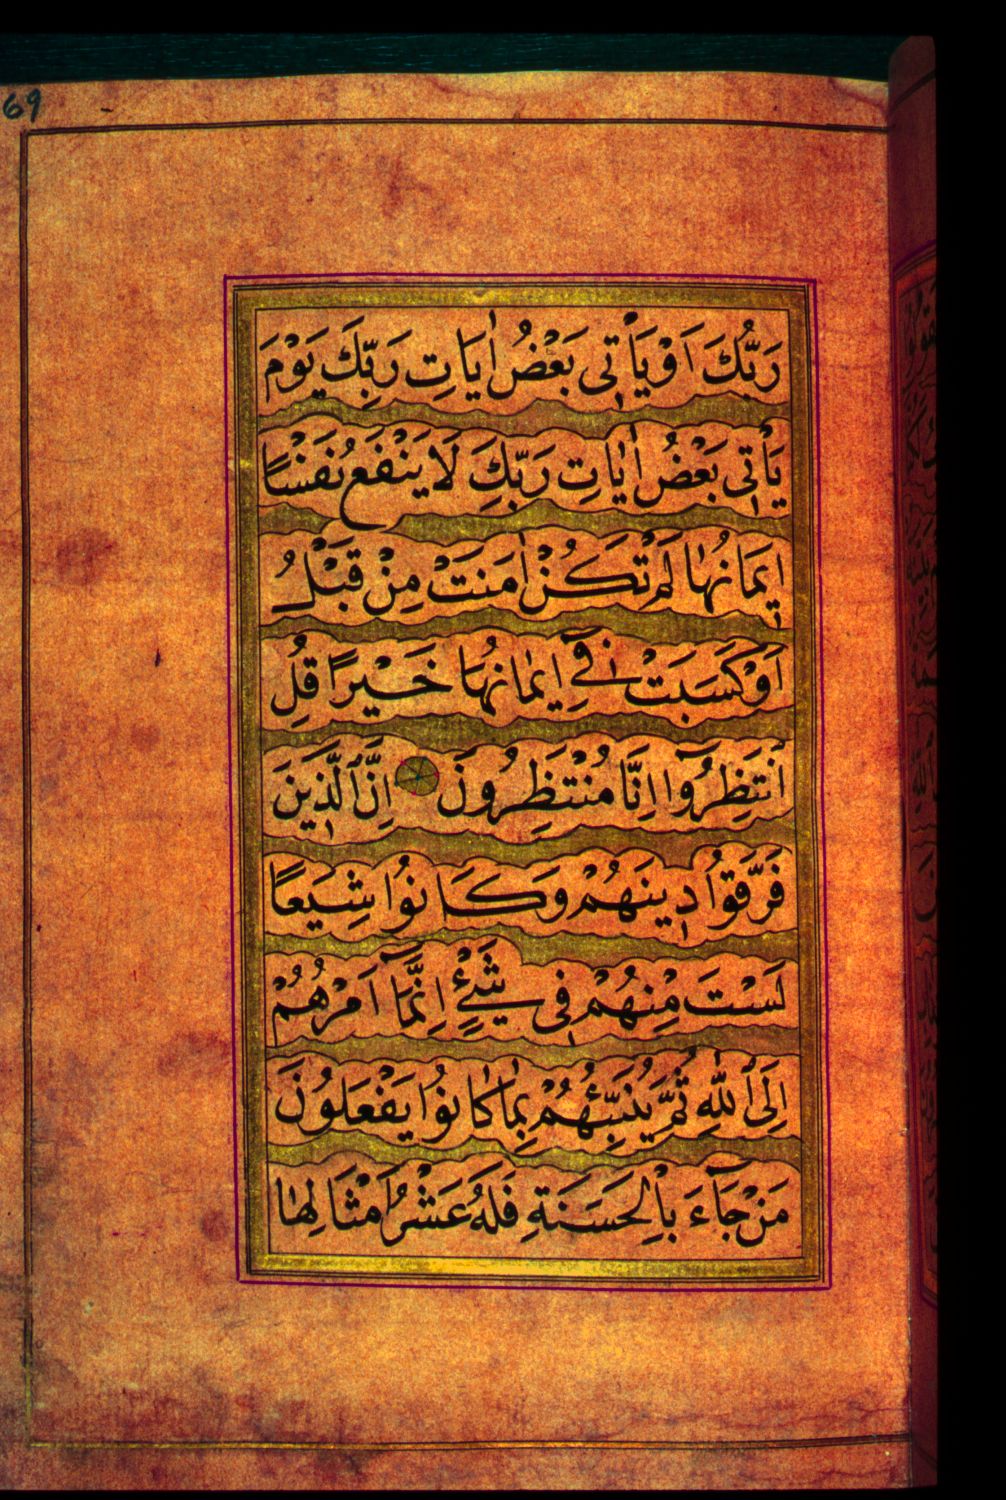 69
رَبُّكَ اَوْ يَاْتِىَ بَعْضُ اٰيَاتِ رَبِّكَ يَوْمَ
يَاْتِى بَعْضُ اٰيَاتِ رَبِّكَ لَا يَنْفَعُ نَفْسًا
اِيمَانُهَا لَمْ تَكُنْ اٰمَنَتْ مِنْ قَبْلُ
اَوْ كَسَبَتْ فٖٓى اِيمَانِهَا خَيْرًا قُلِ
انْتَظِرُوٓا اِنَّا مُنْتَظِرُونَ اِنَّ الَّذٖينَ
فَرَّقُوا دٖينَهُمْ وَكَانُوا شِيَعًا
لَسْتَ مِنْهُمْ فٖى شَىْءٍ اِنَّمَٓا اَمْرُهُمْ
اِلَى اللّٰهِ ثُمَّ يُنَبِّئُهُمْ بِمَا كَانُوا يَفْعَلُونَ
مَنْ جَٓاءَ بِالْحَسَنَةِ فَلَهُ عَشْرُ اَمْثَالِهَا